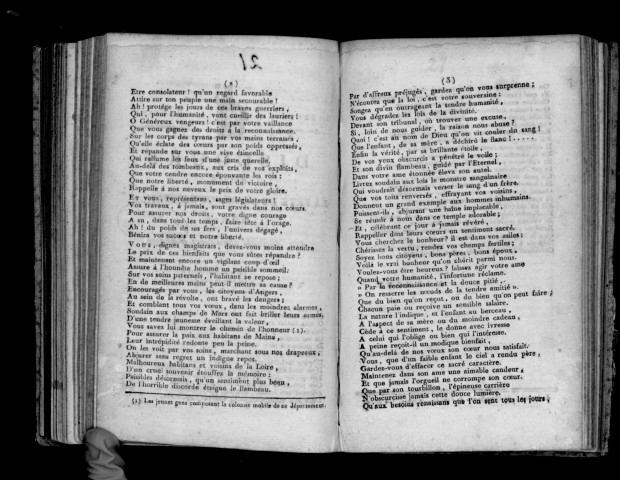 21
(2)
Etre consolateur ! qu'un regard favorable
Attire sur ton peuple une main secourable !
Ah ! protége les jours de ces braves guerriers,
Qui, pour l'humanité, vont cueillir des lauriers !
O Généreux vengeurs ! c'est par votre vaillance
Que vous gagnez des droits à la reconnaissance.
Sur les corps des tyrans par vos mains terrassés,
Qu'elle éclate des cœurs par son poids oppressés,
Et répande sur vous une vive étincelle
Qui rallume les feux d'une juste querelle.
Au-delà des tombeaux, aux cris de vos exploits,
Que votre cendre encore épouvante les rois :
Que notre liberté, monument de victoire,
Rappelle à nos neveux le prix de votre gloire.
Et vous, représentans, sages législateurs !
Vos travaux, à jamais, sont gravés dans nos cœurs.
Pour assurer nos droits, votre digne courage
A su, dans tous les temps, faire tête à l'orage.
Ah ! du poids de ses fers, l'univers dégagé,
Bénira vos succès et notre liberté.
Vous, dignes magistrats, devez-vous moins attendre
Le prix de ces bienfaits que vous sûtes répandre ?
Et maintenant encore un vigilant coup d'œil
Assure à l'honnête homme un paisible sommeil.
Sur vos soins paternels, l'habitant se repose ;
En de meilleures mains peut-il mettre sa cause ?
Encouragés par vous, les citoyens d'Angers,
Au sein de la révolte, ont bravé les dangers ;
Et comblant tous vos vœux, dans les moindres alarmes,
Soudain aux champs de Mars ont fait briller leurs armes.
D'une tendre jeunesse éveillant la valeur,
Vous savez lui montrer le chemin de l'honneur (1).
Pour assurer la paix aux habitans de Maine,
Leur intrépidité redoute peu la peine.
On les voit par vos soins, marchant sous nos drapeaux,
Abjurer sans regret un indigne repos.
Malheureux habitans et voisins de la Loire,
D'un cruel souvenir étouffez la mémoire :
Paisibles désormais, qu'un sentiment plus beau,
De l'horrible discorde éteigne le flambeau.
(1) Les jeunes gens composant la colonne mobile de ce département.
(3)
Par d'affreux préjugés, gardez qu'on vous surprenne ;
N'écoutez que la loi, c'est votre souveraine :
Songez qu'en outrageant la tendre humanité,
Vous dégradez les lois de la divinité.
Devant son tribunal, où trouver une excuse,
Si, loin de nous guider, la raison nous abuse ?
Quoi ! c'est au nom de Dieu qu'on vit couler du sang !
Que l'enfant, de sa mère, a déchiré le flanc !.....
Enfin la vérité, par sa brillante étoile,
De vos yeux obscurcis a pénétré le voile ;
Et son divin flambeau, guidé par l'Eternel,
Dans votre ame étonnée éleva son autel.
Livrez soudain aux lois le monstre sanguinaire
Qui voudrait désormais verser le sang d'un frère.
Que vos toits renversés, effrayant vos voisins,
Donnent un grand exemple aux hommes inhumains.
Puissent-ils, abjurant une haine implacable,
Se réunir à nous dans ce temple adorable ;
Et, célébrant ce jour à jamais révéré,
Rappeller dans leurs cœurs un sentiment sacré.
Vous cherchez le bonheur ? il est dans vos asiles :
Chérissez la vertu, rendez vos champs fertiles ;
Soyez bons citoyens, bons pères, bons époux,
Voilà le vrai bonheur qu'on chérit parmi nous.
Voulez-vous être heureux ? laissez agir votre ame
Quand votre humanité, l'infortune réclame.
» Par la reconnaissance et la douce pitié,
» On resserre les nœuds de la tendre amitié ».
Que du bien qu'on reçut, ou du bien qu'on peut faire,
Chacun paie ou reçoive un sensible salaire.
La nature l'indique, et l'enfant au berceau,
A l'aspect de sa mère ou du moindre cadeau,
Cède à ce sentiment, le donne avec ivresse
A celui qui l'oblige ou bien qui l'intéresse.
A peine reçoit-il un modique bienfait,
Qu'au-delà de nos vœux son cœur nous satisfait.
Vous, que d'un faible enfant le ciel a rendu père,
Gardez-vous d'effacer ce sacré caractère.
Maintenez dans son ame une aimable candeur,
Et que jamais l'orgueil ne corrompe son cœur.
Que par son tourbillon, l'épineuse carrière
N'obscurcisse jamais cette douce lumière.
Qu'aux besoins renaissans que l'on sent tous les jours,